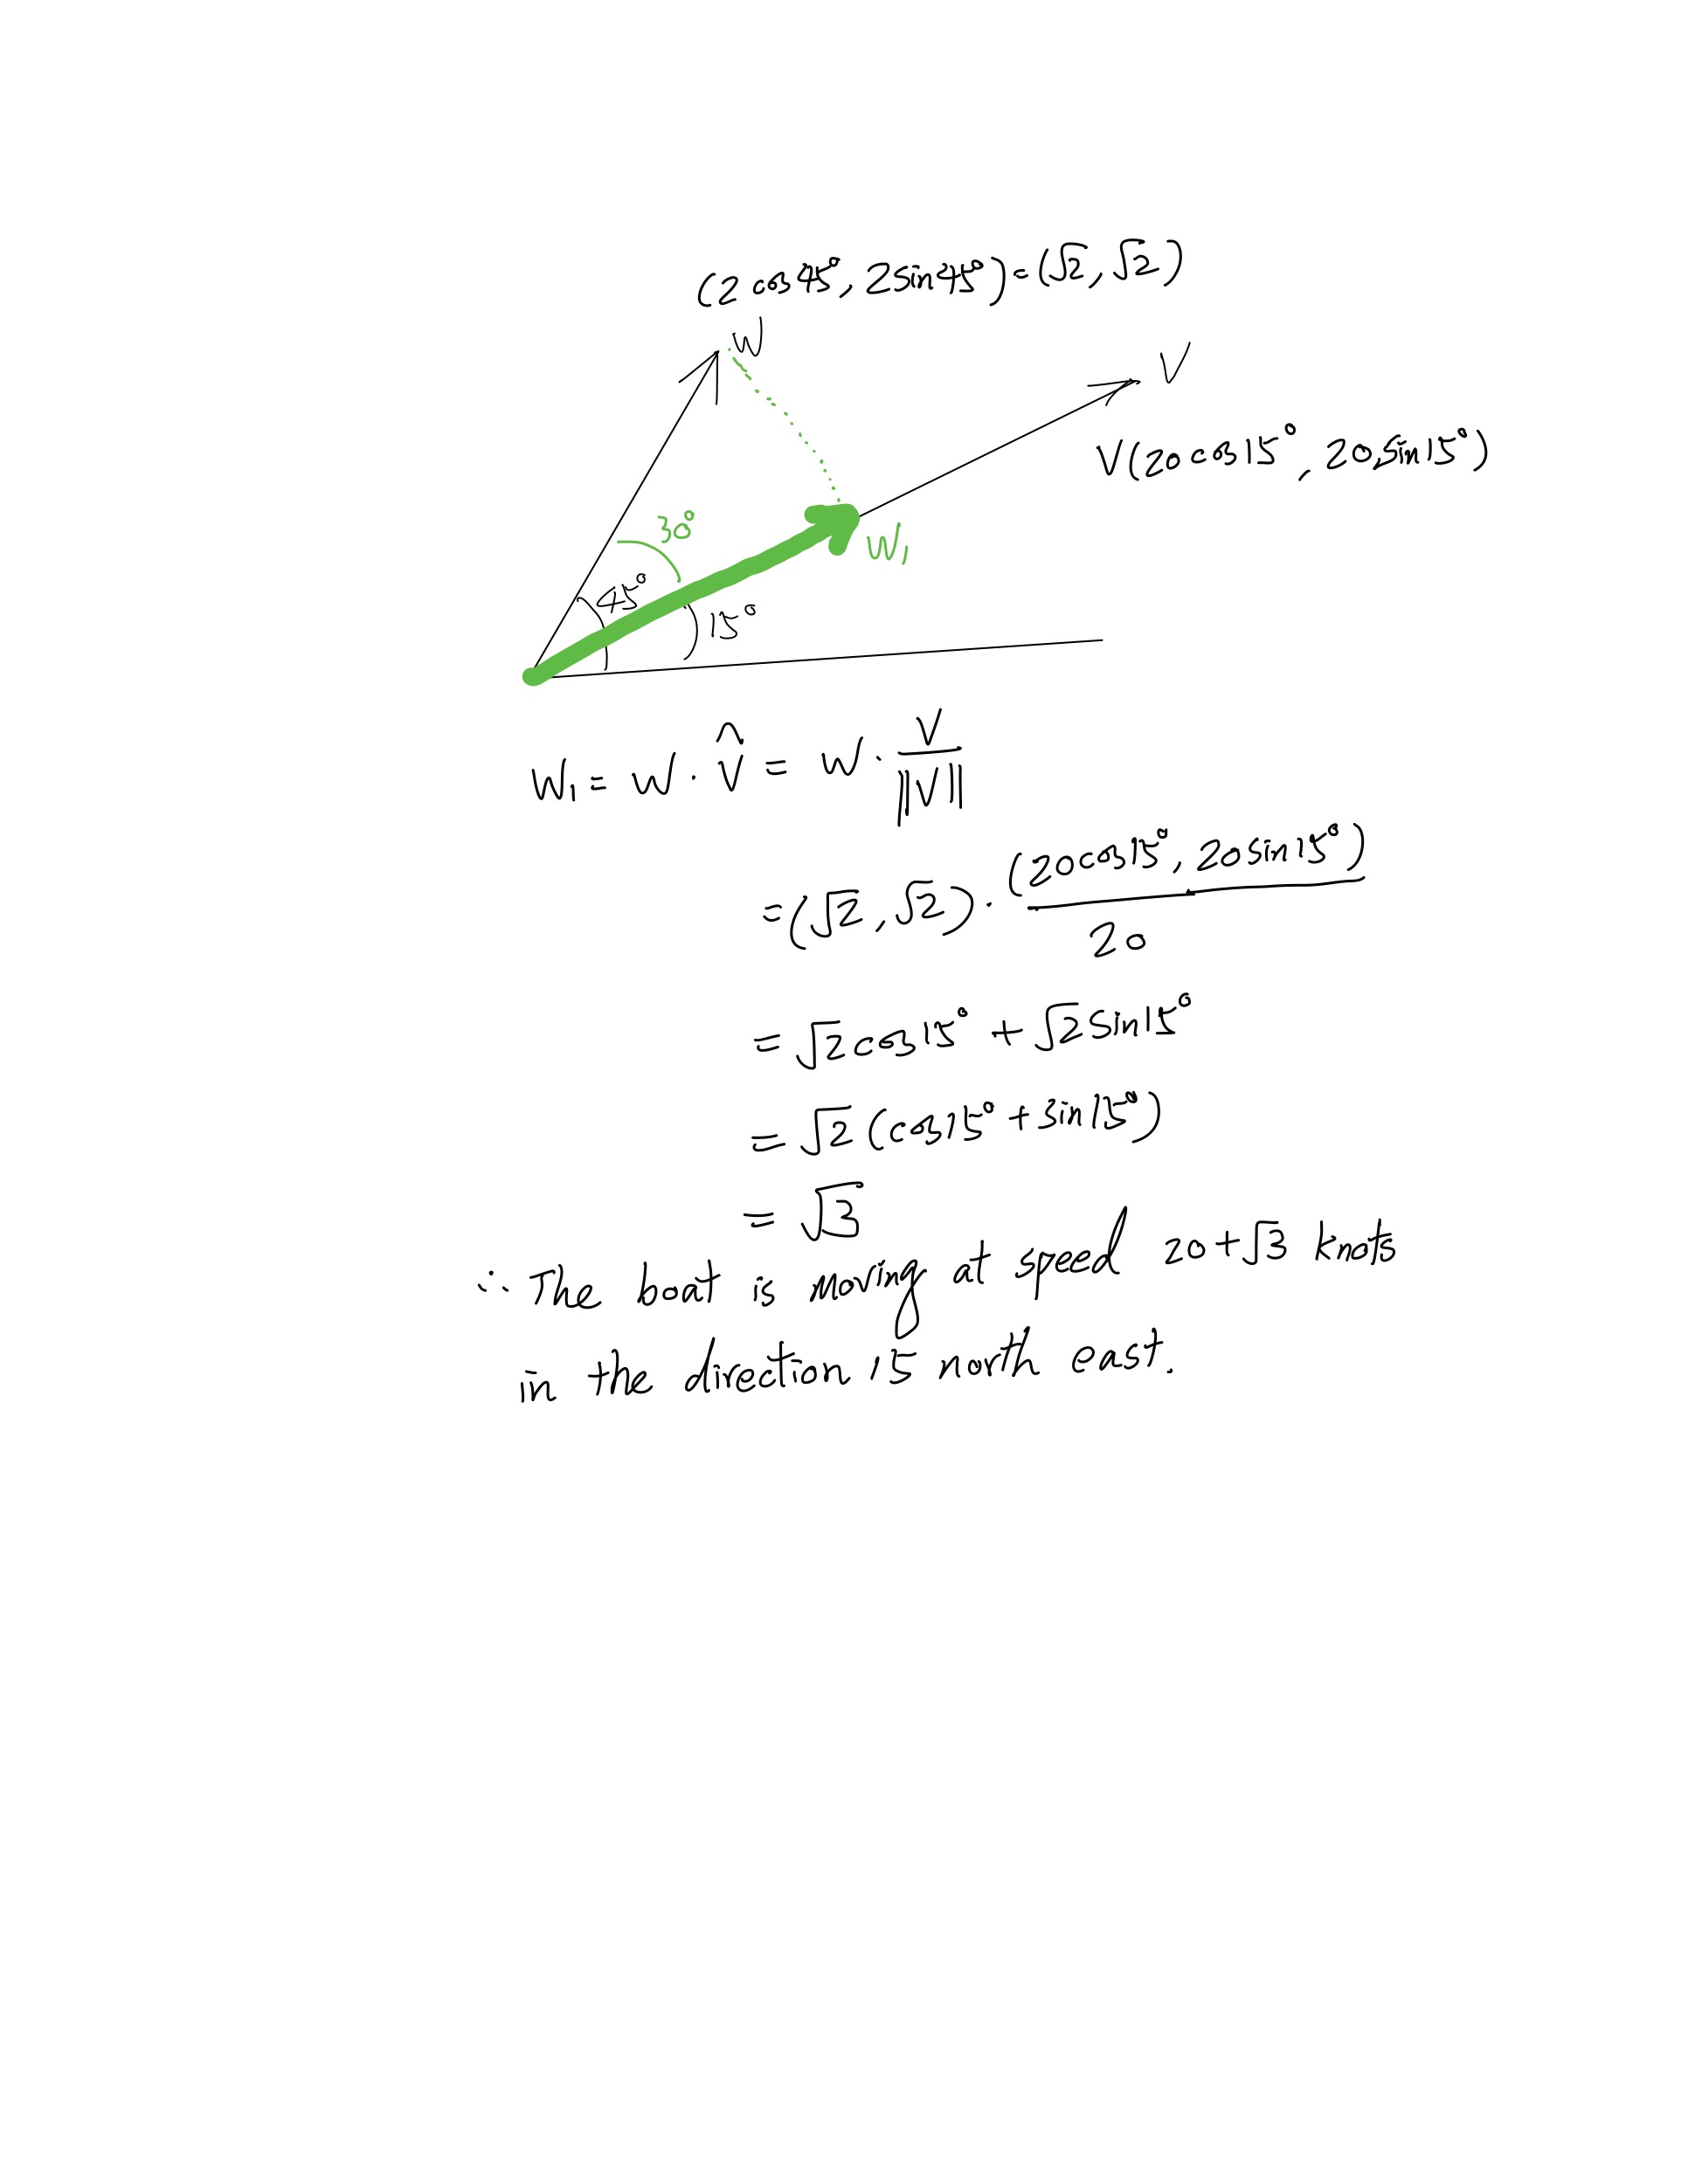 (2 cos45°, 2sin45°)=(√2, √2)
W
V
V(20 cos15°, 20 sin15°)
30°
W₁
45°
15°
W₁ = W · V̂ = W · V/‖V‖
=(√2, √2) · (20cos15°, 20sin15°)/20
= √2 cos15° + √2 sin15°
= √2 (cos15° + sin15°)
= √3
∴ The boat is moving at speed 20+√3 knots
in the direction 15 north east.